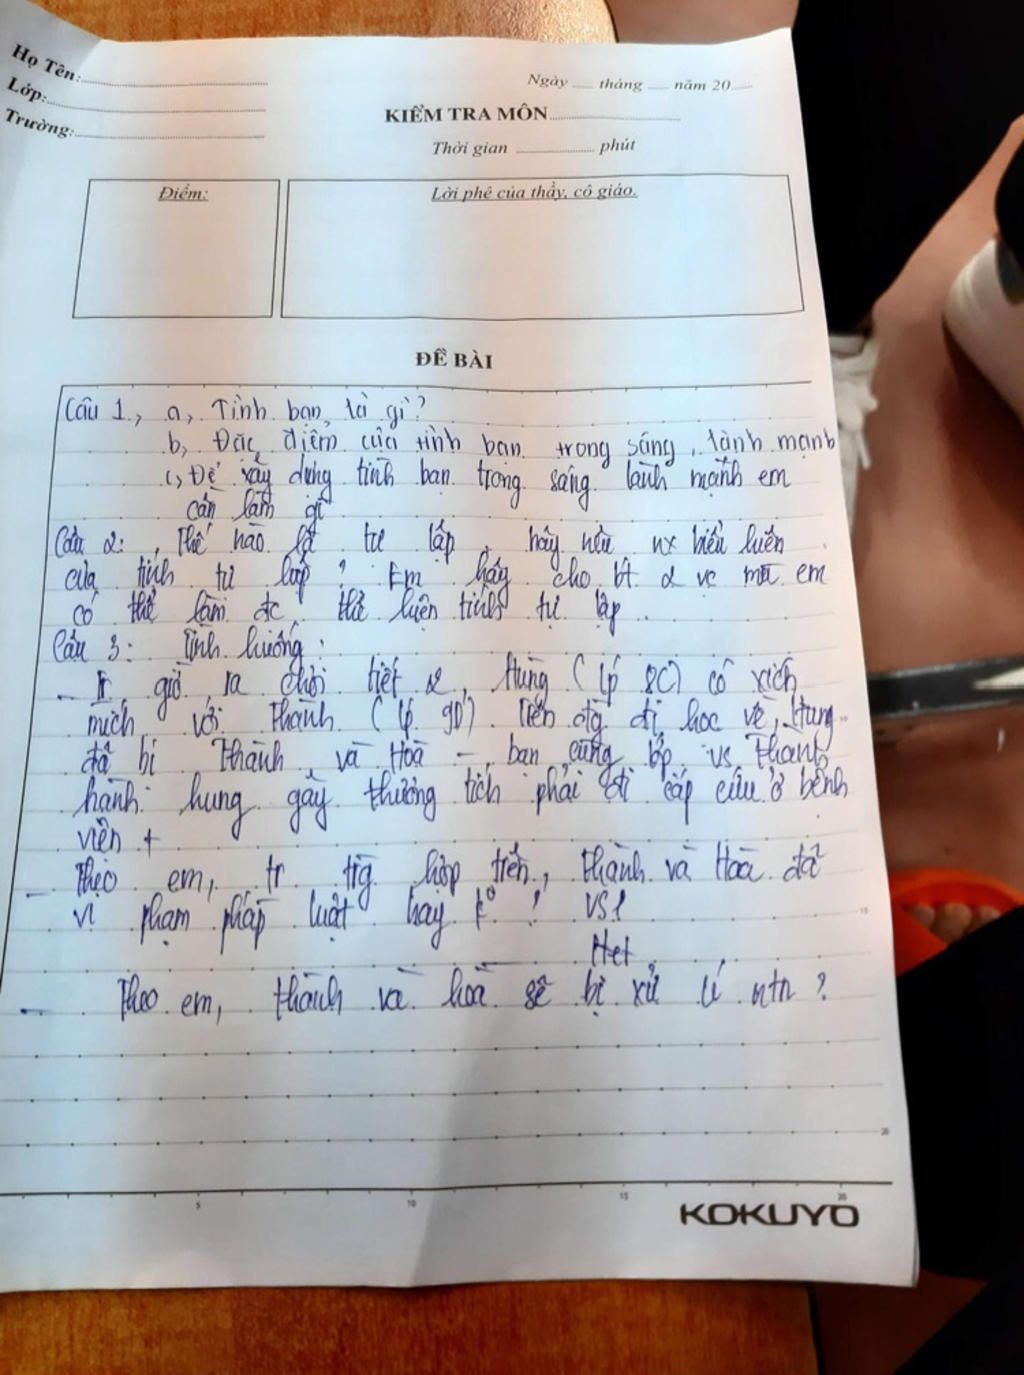 Họ Tên:
Lớp:
Trường:
Ngày ..... tháng ..... năm 20.....
KIỂM TRA MÔN
Thời gian ............... phút
Điểm:
Lời phê của thầy, cô giáo.
ĐỀ BÀI
Câu 1, a, Tình bạn là gì?
b, Đặc điểm của tình bạn trong sáng, lành mạnh
c, Để xây dựng tình bạn trong sáng lành mạnh em
cần làm gì
Câu 2: Thế nào là tự lập, hãy nêu nx biểu hiện
của tính tự lập? Em hãy cho bt 2 vc mà em
có thể làm đc thể hiện tính tự lập.
Câu 3: Tình huống:
- Tr giờ ra chơi tiết 2, Hùng (lp 8C) có xích
mích với Thành (lp 9D). Trên đg đi học về, Hùng
đã bị Thành và Hoà - bạn cùng lớp vs Thành
hành hung gây thương tích phải đi cấp cứu ở bệnh
viện +
- Theo em, tr trg hợp trên, Thành và Hoà đã
vi phạm pháp luật hay k° ? VS?
Hết
- Theo em, thành và hoà sẽ bị xử lí ntn?
5
10
15
20
10
15
20
KOKUYO